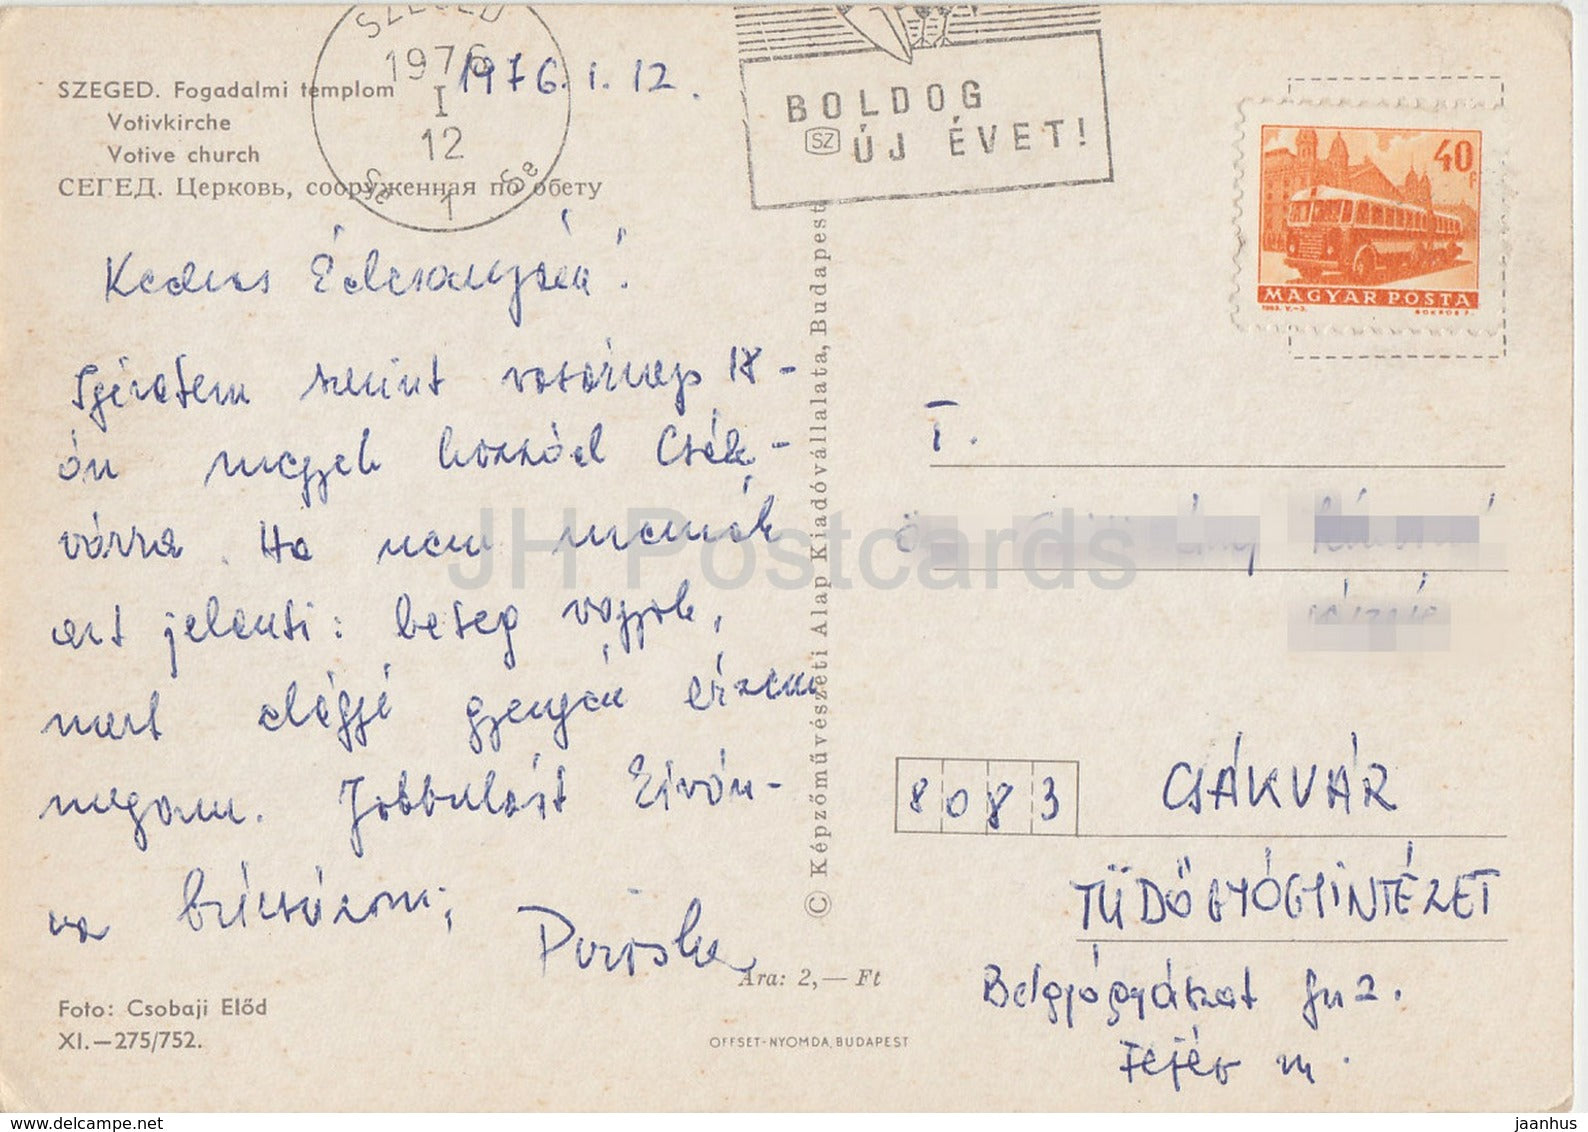 SZEGED. Fogadalmi templom
Votivkirche
Votive church
СЕГЕД. Церковь, сооруженная по обету
SZEGED
1976
I
12
1
1976. I. 12.
BOLDOG
SZ ÚJ ÉVET!
40f
MAGYAR POSTA
Kedves Édesanyám!
Igéretem szerint vasárnap 18-
án megyek hozzád Csák-
várra. Ha nem mennék
azt jelenti: beteg vagyok,
mert eléggé gyengén érzem
magam. Jobbulást kíván-
va
Piroska
T.
8083 CSÁKVÁR
TÜDŐGYÓGYINTÉZET
Belgyógyászat fu 2.
Fejér m.
© Képzőművészeti Alap Kiadóvállalata, Budapest
Ára: 2,— Ft
Foto: Csobaji Előd
XI.—275/752.
OFFSET-NYOMDA, BUDAPEST
JH Postcards
www.delcampe.net
jaanhus